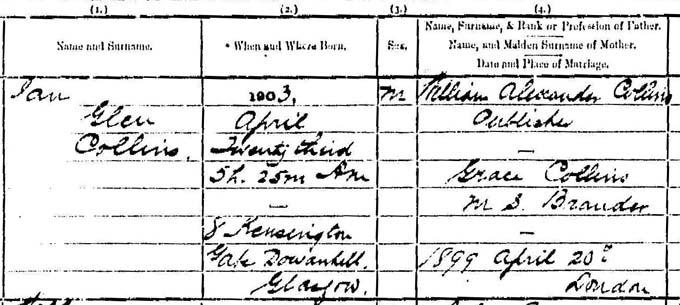 (1.) (2.) (3.) (4.)
Name and Surname.
When and Where Born.
Sex.
Name, Surname, & Rank or Profession of Father.
Name, and Maiden Surname of Mother.
Date and Place of Marriage.
Ian
Glen
Collins.
1903,
April
Twenty third
5h. 25m AM
—
8 Kensington
Gate Dowanhill,
Glasgow.
M
William Alexander Collins
Publisher
—
Grace Collins
M. S. Brander
—
1899 April 20th
London